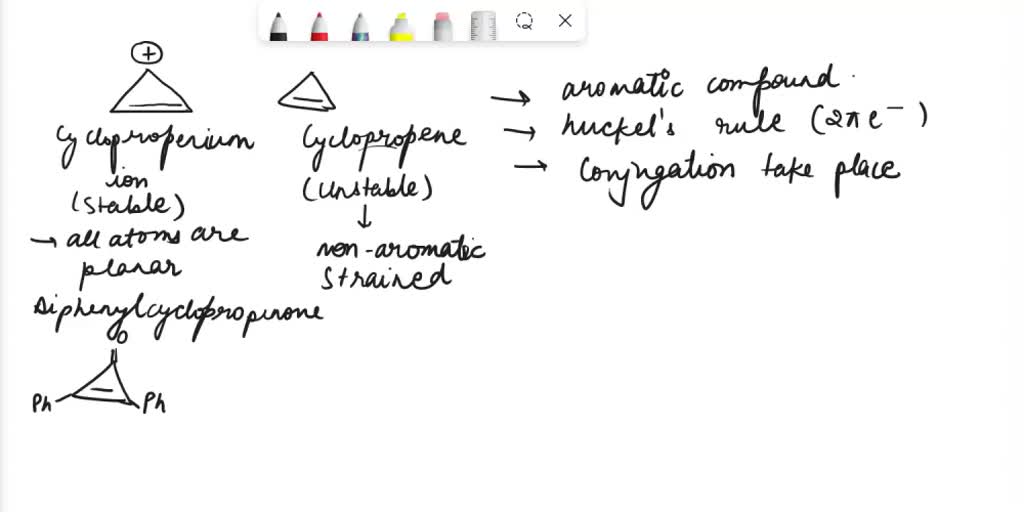 +
Cycloproperium
ion
(Stable)
→ all atoms are
planar
Cyclopropene
(Unstable)
↓
non-aromatic
strained
→ aromatic compound.
→ huckel's rule (2πe⁻)
→ Conjngation take place
Diphenylcyclopropenone
O
Ph
Ph